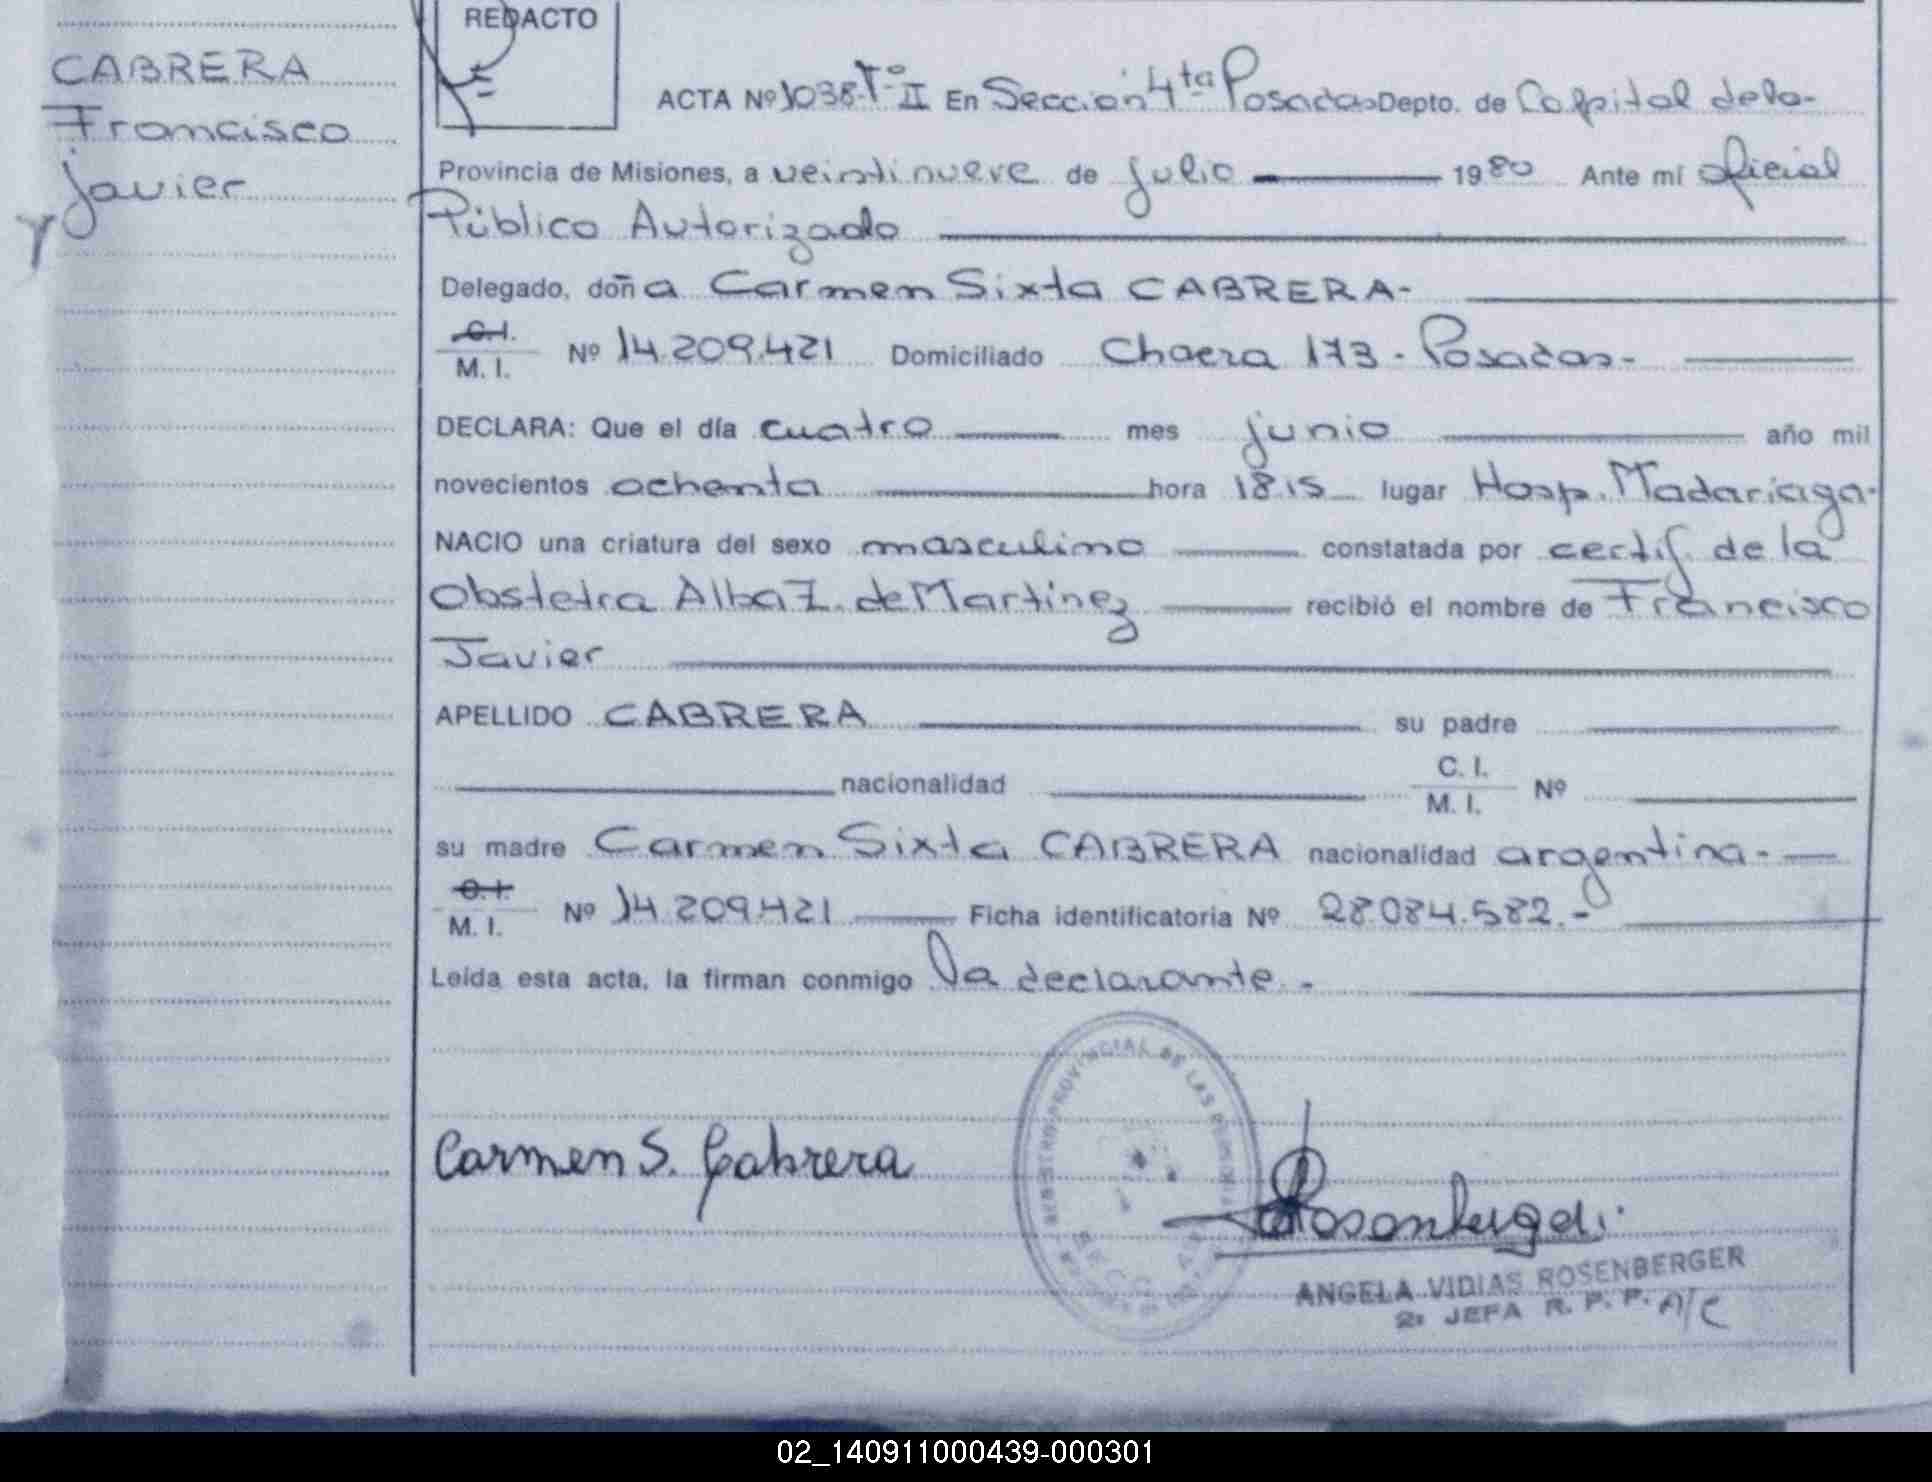 REDACTO
CABRERA
Francisco
Javier
ACTA Nº 1038 Tº II En Sección 4ta Posadas Depto. de Capital de la
Provincia de Misiones, a veintinueve de julio 1980 Ante mí oficial
Público Autorizado
Delegado, doña Carmen Sixta CABRERA-
C.I.
M. I. Nº 14.209.421 Domiciliado Chacra 173 - Posadas-
DECLARA: Que el día cuatro mes junio año mil
novecientos ochenta hora 18.15 lugar Hosp. Madariaga-
NACIO una criatura del sexo masculino constatada por certif. de la
Obstetra Alba Z. de Martínez recibió el nombre de Francisco
Javier
APELLIDO CABRERA su padre
nacionalidad C. I.
M. I. Nº
su madre Carmen Sixta CABRERA nacionalidad argentina.-
C.I.
M. I. Nº 14.209.421 Ficha identificatoria Nº 28.084.582.-
Leída esta acta, la firman conmigo la declarante.-
PROVINCIAL DE LAS
Carmen S. Cabrera
ANGELA VIDIAS ROSENBERGER
2ª JEFA R. P. P. A/C
02_140911000439-000301